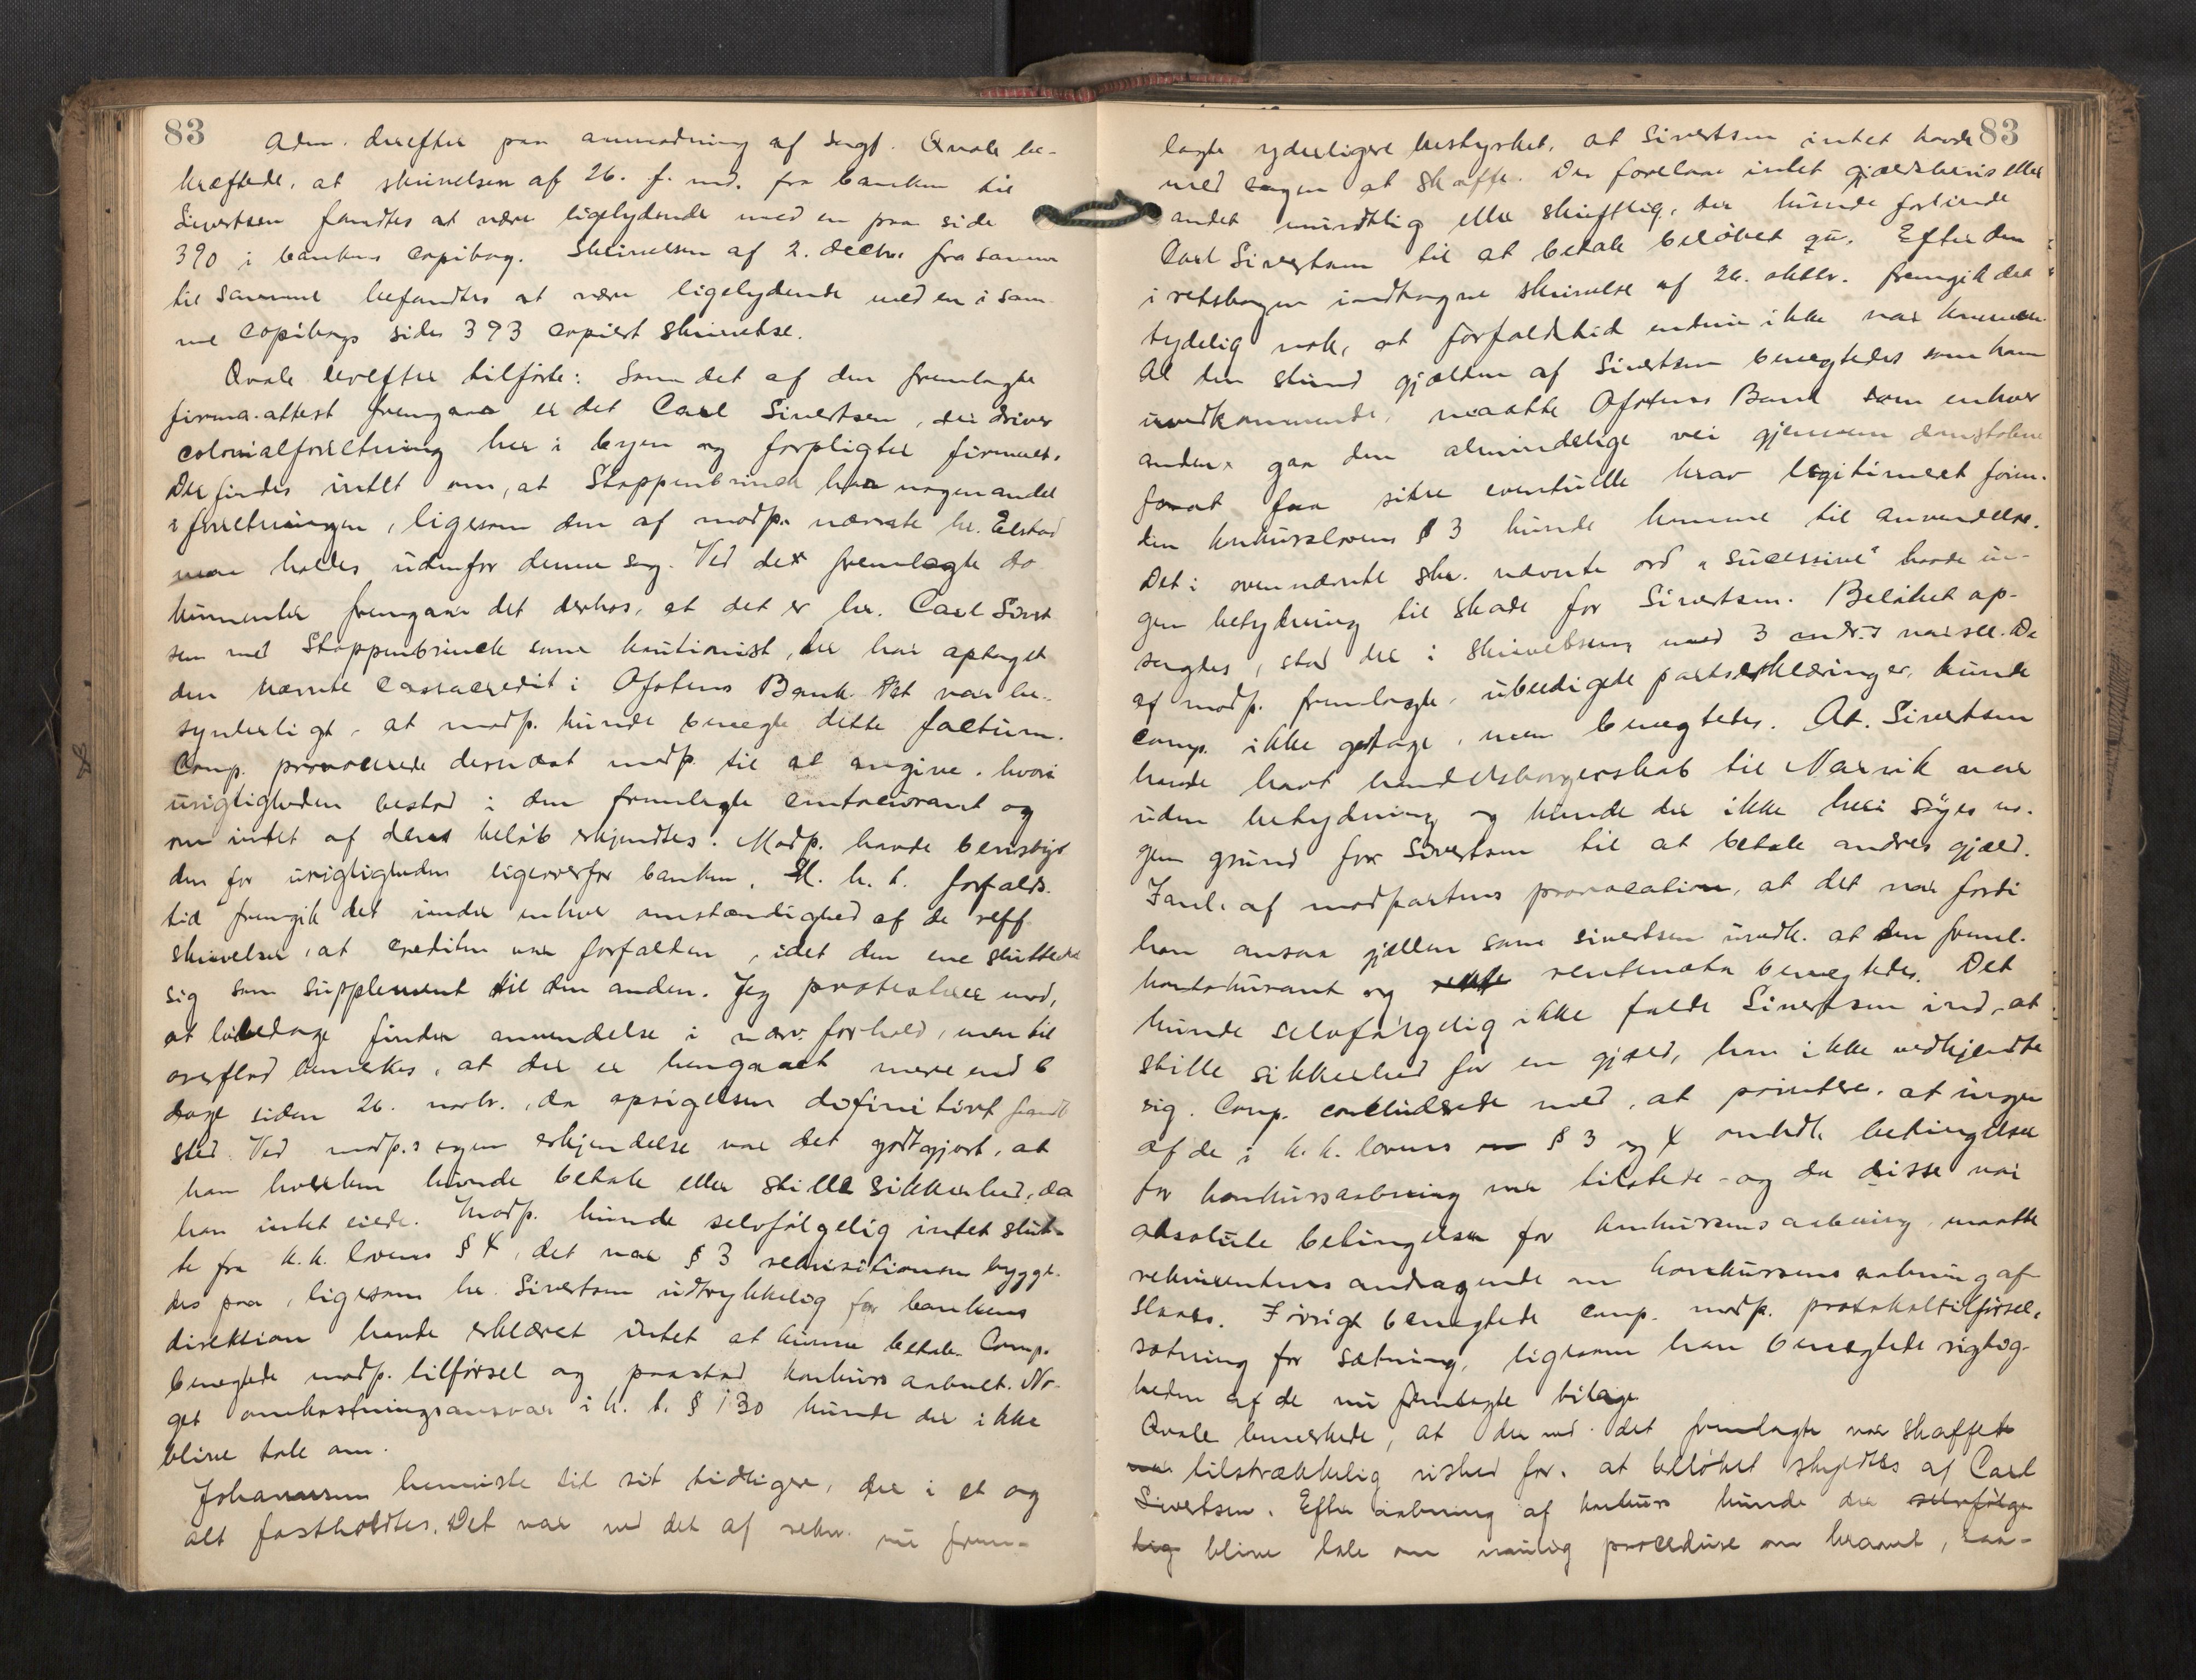 83
Adm. derefter paa anmodning af sagf. Qvale be-
kræftede, at skrivelsen af 26. f. md. fra banken til
Sivertsen fandtes at være ligelydende med en paa side
390 i bankens copibog. Skrivelsen af 2. decbr. fra samme
til samme befandtes at være ligelydende med en i sam-
me copibogs side 393 copiert skrivelse.
Qvale derefter tilførte: Som det af den fremlagte
firma-attest fremgaar er det Carl Sivertsen, der driver
colonialforretning her i byen og forpligter firmaet.
Der findes intet om, at Stoppenbrinck har nogen andel
i forretningen, ligesom den af modp. nævnte hr. Elstad
maa holdes udenfor denne sag. Ved de fremlagte do-
kumenter fremgaar det derhos, at det er hr. Carl Sivert
sen med Stoppenbrinck som kautionist, der har optaget
den nævnte cassacredit i Ofotens Bank. Det var be-
synderligt, at modp. kunde benegte dette factum.
Comp. provocerede dernæst modp. til at angive, hvori
urigtigheden bestod i den fremlagte contocurant og
om intet af dens beløb erkjendtes. Modp. havde benegtet
den for urigtigheden ligeoverfor banken. M. h. t. forfalds-
tid fremgik det under enhver omstændighed af de reff.
skrivelser, at crediten var forfalden, idet den ene sluttede
sig som supplement til den anden. Jeg protesterer mod,
at løbedage finder anvendelse i nærv. forhold, men til
overflod bemerkes, at der er hengaaet mere end 6
dage siden 26. novbr., da opsigelsen definitivt fandt
sted. Ved modp.s egen erkjendelse var det godtgjort, at
han hverken kunde betale eller stille sikkerhed, da
han intet eiede. Modp. kunde selvfølgelig intet slut-
te fra k.k. lovens § 4, det var § 3 rekvisitionen bygge-
des paa, ligesom hr. Sivertsen udtrykkelig for bankens
direktion havde erklæret intet at kunne betale. Comp.
benegtede modp. tilførsel og paastod konkurs aabnet. No-
get omkostningsansvar i h. t. § 130 kunde der ikke
blive tale om.
Johannessen henviste til sit tidligere, der i et og
alt fastholdtes. Det var ved det af rekv. nu frem-
83
lagte yderligere bestyrket, at Sivertsen intet havde
med sagen at skaffe. Der forelaa intet gjældsbevis eller
andet mundtlig eller skriftlig, der kunde forbinde
Carl Sivertsen til at betale beløbet qu. Efter den
i retsbogen indtagne skrivelse af 26. oktbr. fremgik det
tydelig nok, at forfaldstid endnu ikke var kommen.
Al den stund gjælden af Sivertsen benegtedes som ham
uvedkommende, maatte Ofotens Bank som enhver
anden gaa den almindelige vei gjennem domstolene
forat faa sidne eventuelle krav legitimeret foren-
den konkurslovens § 3 kunde komme til anvendelse.
Det i ovennævnte skr. nævnte ord "sucessive" havde in-
gen betydning til skade for Sivertsen. Beløbet op-
sagdes, stod der i skrivelsen med 3 mdr.s varsel. De
af modp. fremlagte, ubeedigede partserklæringer, kunde
comp. ikke godtage, men benegtedes. At Sivertsen
havde havt handelsborgerskab til Narvik var
uden betydning og kunde der ikke heri søges no-
gen grund for Sivertsen til at betale andres gjæld.
I anl. af modpartens provocation, at det var fordi
han ansaa gjælden som Sivertsen uvedk. at den freml.
kontokurant og rentenota benegtedes. Det
kunde selvfølgelig ikke falde Sivertsen ind, at
stille sikkerhed for en gjæld, han ikke vedkjendte
sig. Comp. concluderede med, at pointere, at ingen
af de i k.k. lovens § 3 og 4 omhdl. betingelser
for konkursaabning var tilstede - og da disse var
absolute betingelser for konkursens aabning, maatte
rekvirentens andragende om konkursens aabning af-
slaaes. Forøvrigt benegtede comp. modp. protokoltilførsel,
sætning for sætning, ligesom han benegtede rigtig-
heden af de nu fremlagte bilage
Qvale bemerkede, at der ved det fremlagte var skaffet
tilstrækkelig vished for, at beløbet skyldtes af Carl
Sivertsen. Efter aabning af konkurs kunde der selvfølge-
lig blive tale om mulig procedure om kravet, saa-